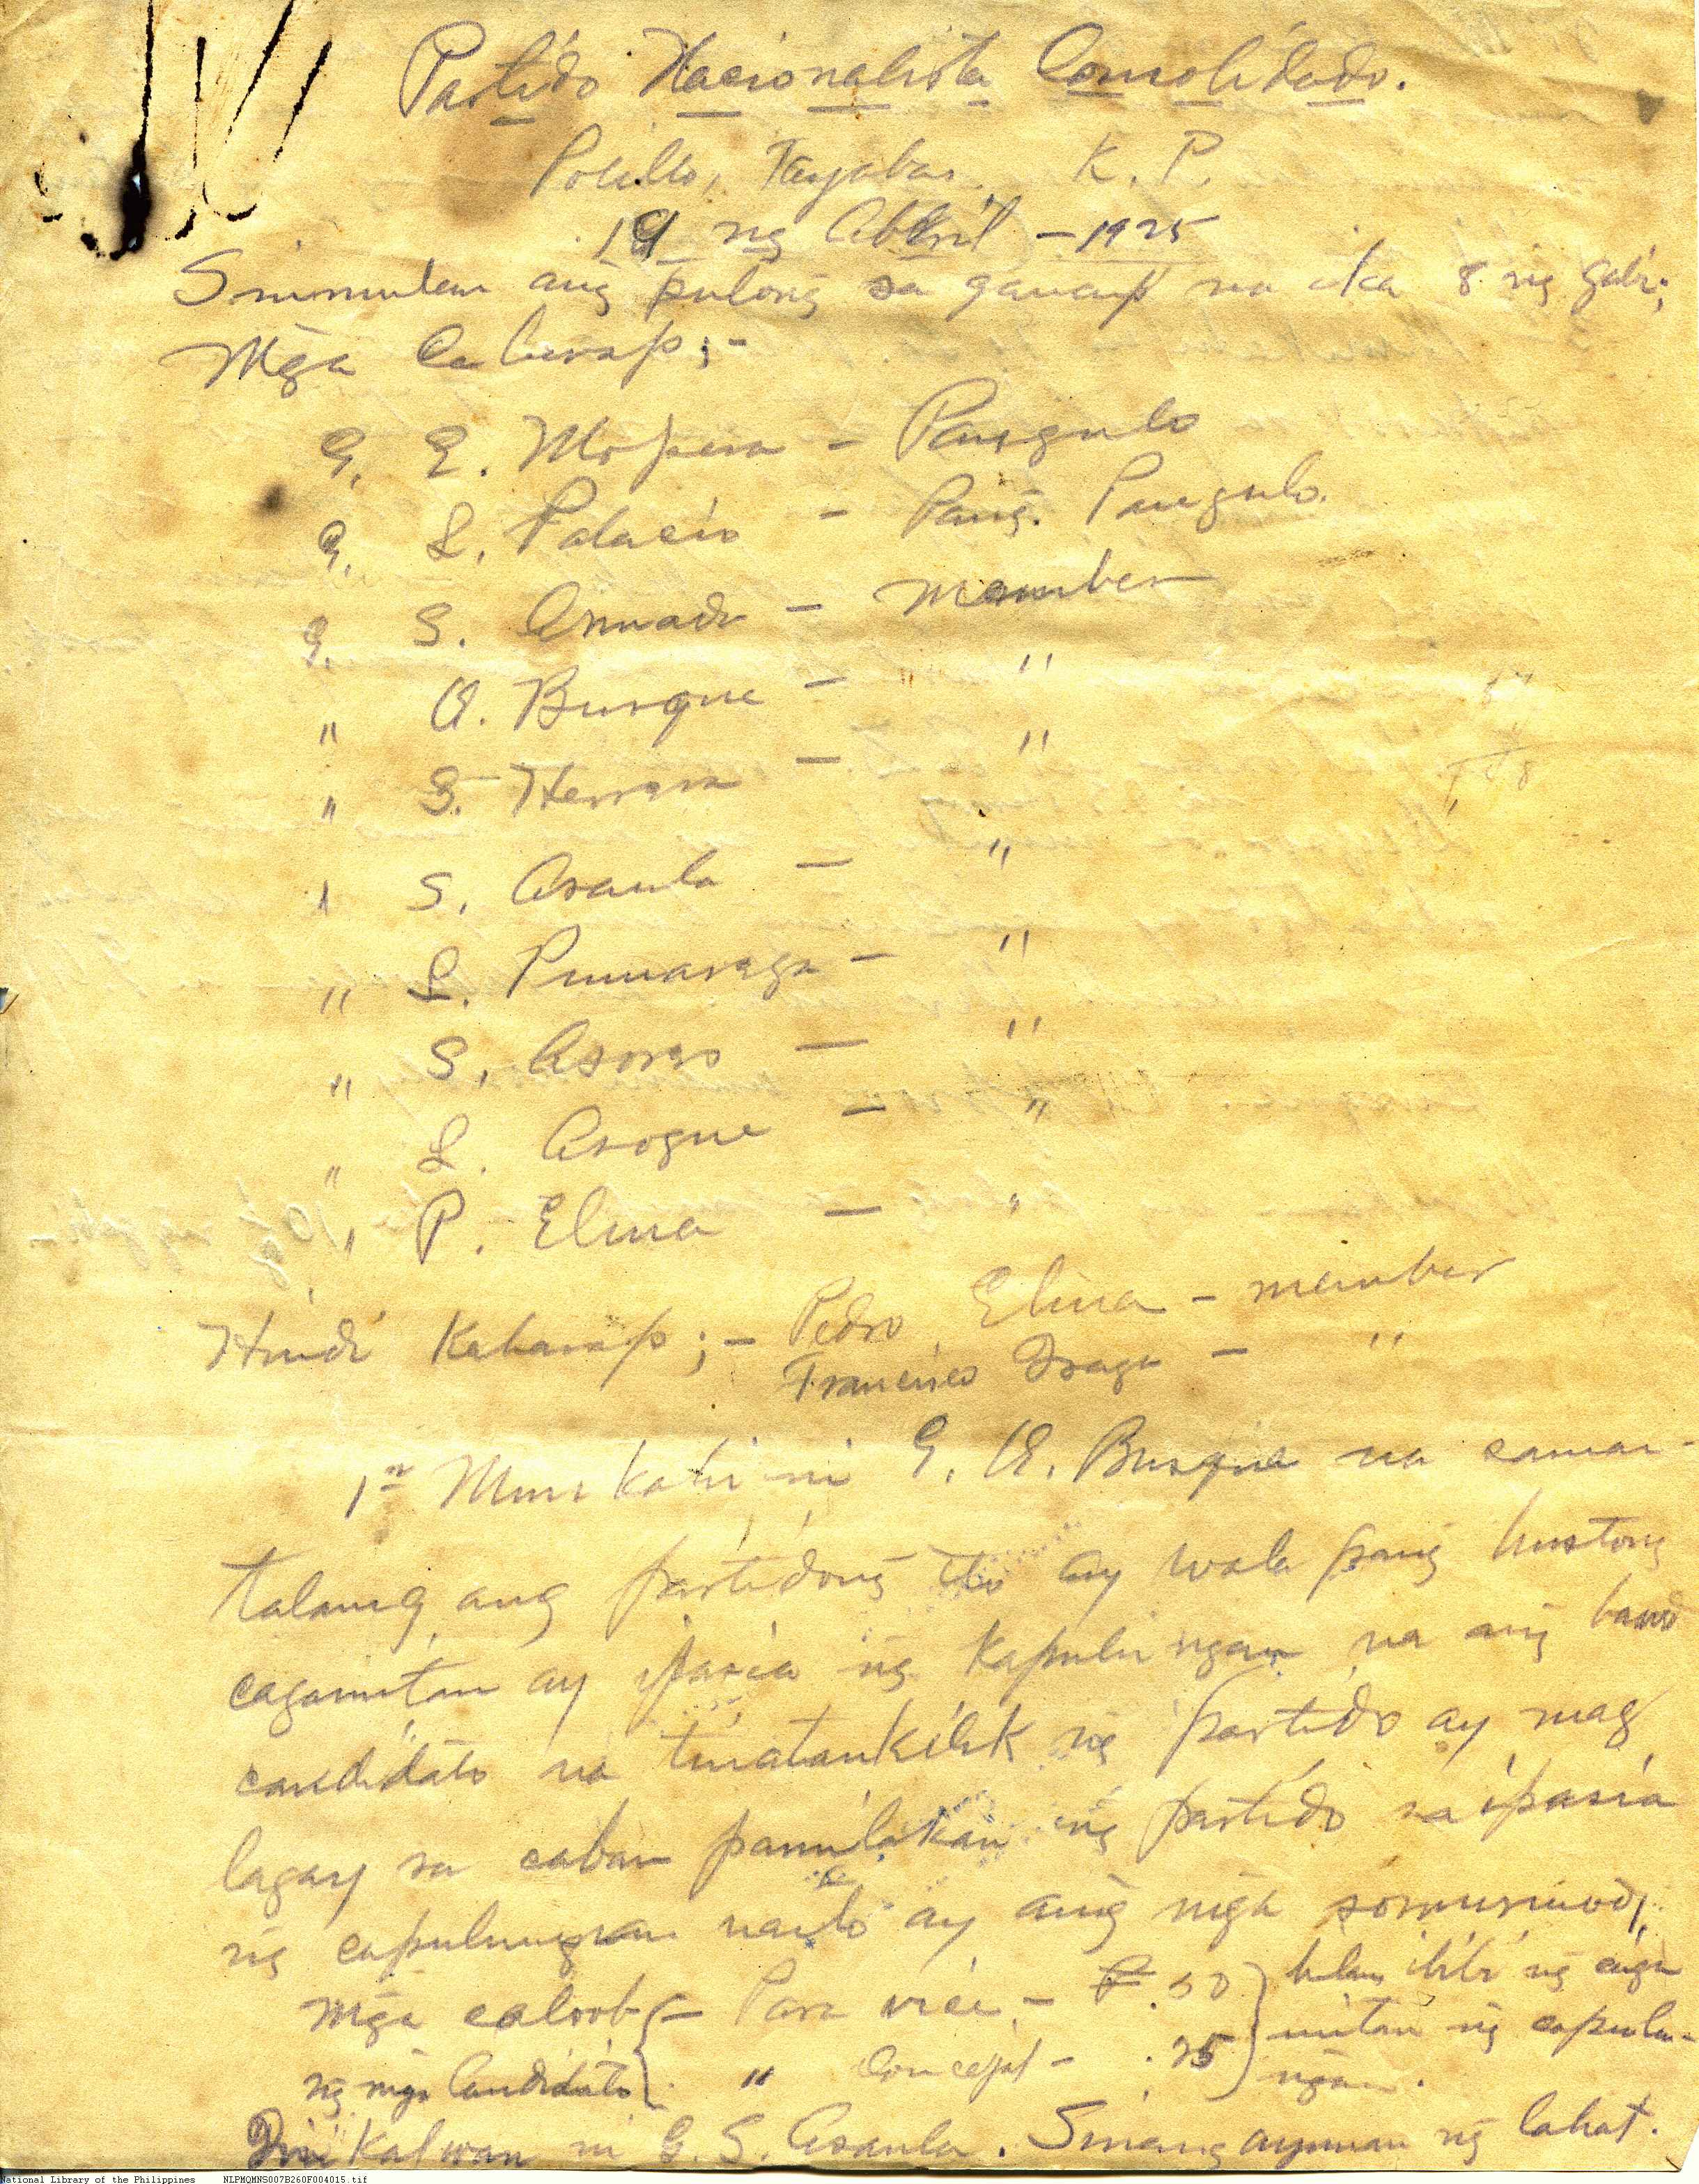 Partido Nacionalista Consolidado.
Polillo, Tayabas, K. P.
19 ng Abril - 1925
Sinimulan ang pulong sa ganap na ika 8 ng gabi;
Mga Caharap; -
G. E. Mopera - Pangulo
G. L. Palacio - Pang. Pangulo.
G. S. - member
" A. Busque - "
" S. Herrera - "
" S. Asaula - "
" L. Pumaraga - "
" S. Asoro - "
" L. Asogue - "
" P. Elma - "
Hindi Kaharap; - Pedro Elma - member
Francisco - "
1º Mun kahi ni G. A. Busque na saman-
talang ang partidong ito ay wala pang hustong
cagamitan ay ipasia ng kapulungan na ang bawat
candidato na tinatankilik ng partido ay mag
lagay sa caban panulakan ng partido sa ipasia
ng capulungan naito ay ang mga somusunod,
mga caloob { - Para vice - ₱.50 } bilan ng caga
ng mga Candidato { " Concejal - .25 } mitan ng capulu-
ngan.
Pinikatwan ni G. S. Asaula. Sinang ayunan ng lahat.
National Library of the Philippines NLPMQMNS007B260F004015.tif